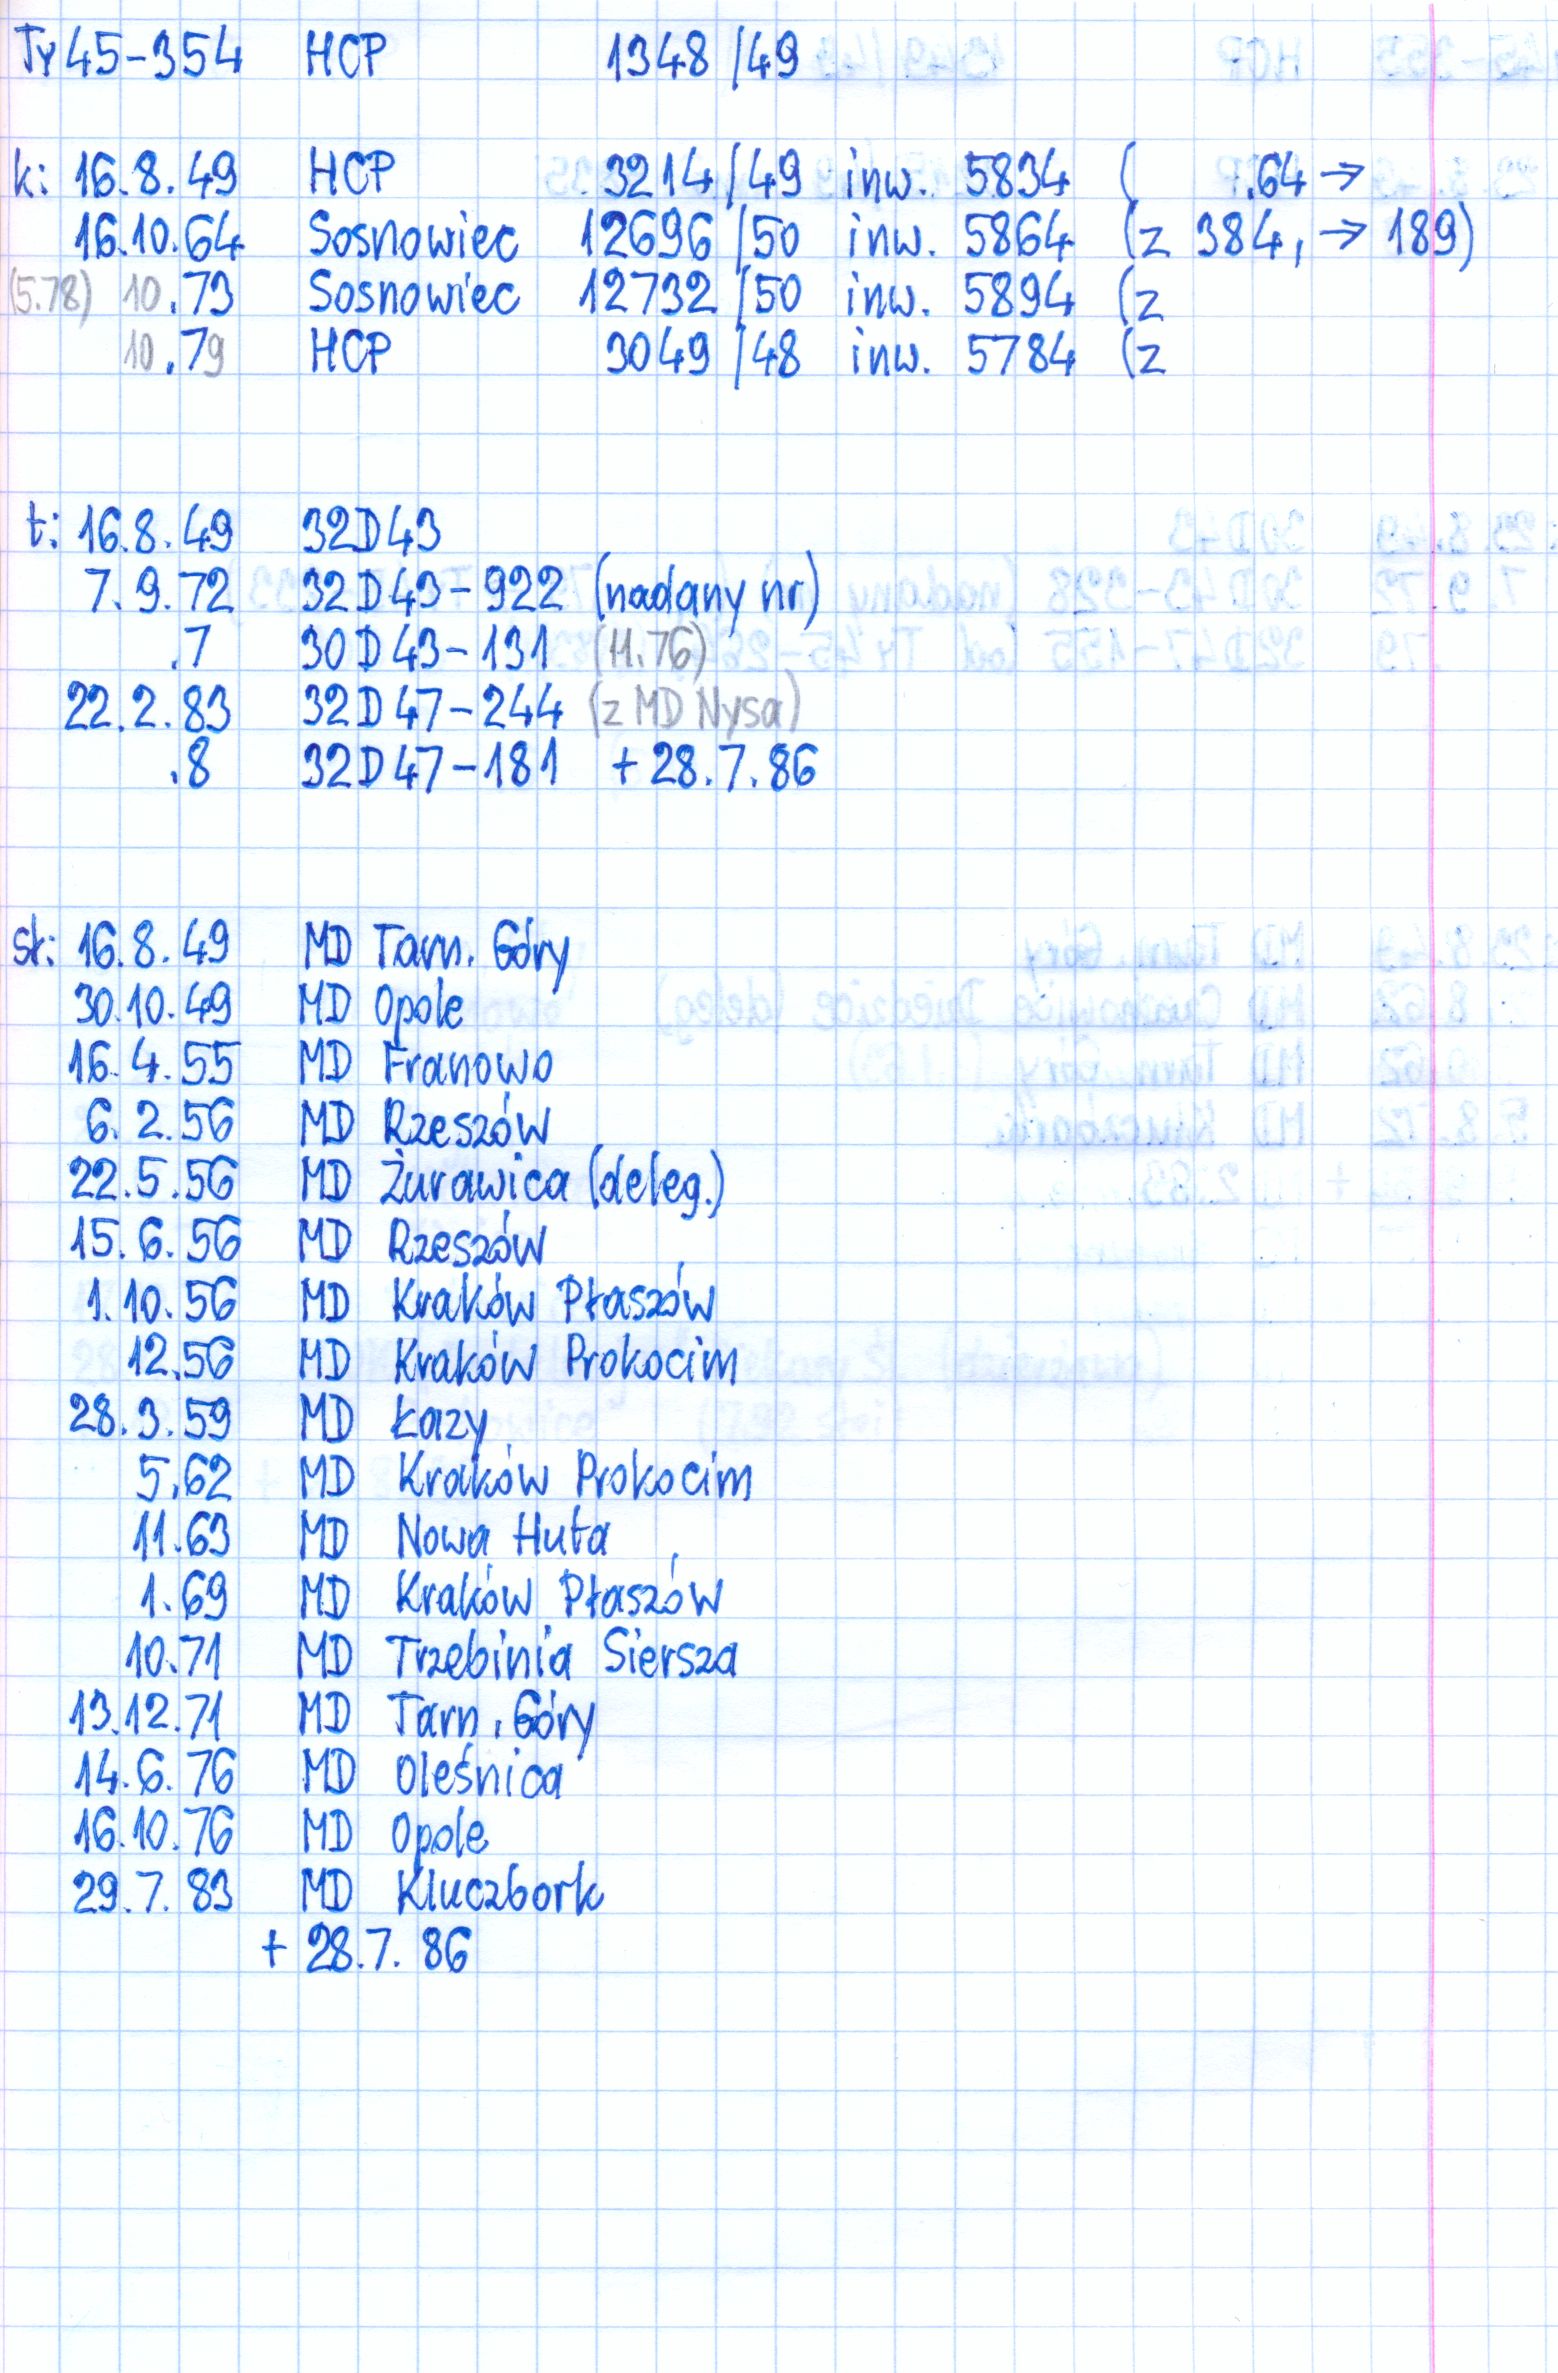 Ty45-354 HCP 1348/49
k: 16.8.49 HCP 3214/49 inw. 5834 ( .64 →
16.10.64 Sosnowiec 12696/50 inw. 5864 (z 384, → 189)
(5.78) 10.73 Sosnowiec 12732/50 inw. 5894 (z
10.79 HCP 3049/48 inw. 5784 (z
t: 16.8.49 32D43
7.9.72 32D43-922 (nadany nr)
.7 30D43-131 (11.76)
22.2.83 32D47-244 (z MD Nysa)
.8 32D47-181 + 28.7.86
st: 16.8.49 MD Tarn. Góry
30.10.49 MD Opole
16.4.55 MD Franowo
6.2.56 MD Rzeszów
22.5.56 MD Żurawica (deleg.)
15.6.56 MD Rzeszów
1.10.56 MD Kraków Płaszów
12.56 MD Kraków Prokocim
28.3.59 MD Łazy
5.62 MD Kraków Prokocim
11.63 MD Nowa Huta
1.69 MD Kraków Płaszów
10.71 MD Trzebinia Siersza
13.12.71 MD Tarn. Góry
14.6.76 MD Oleśnica
16.10.76 MD Opole
29.7.83 MD Kluczbork
+ 28.7.86